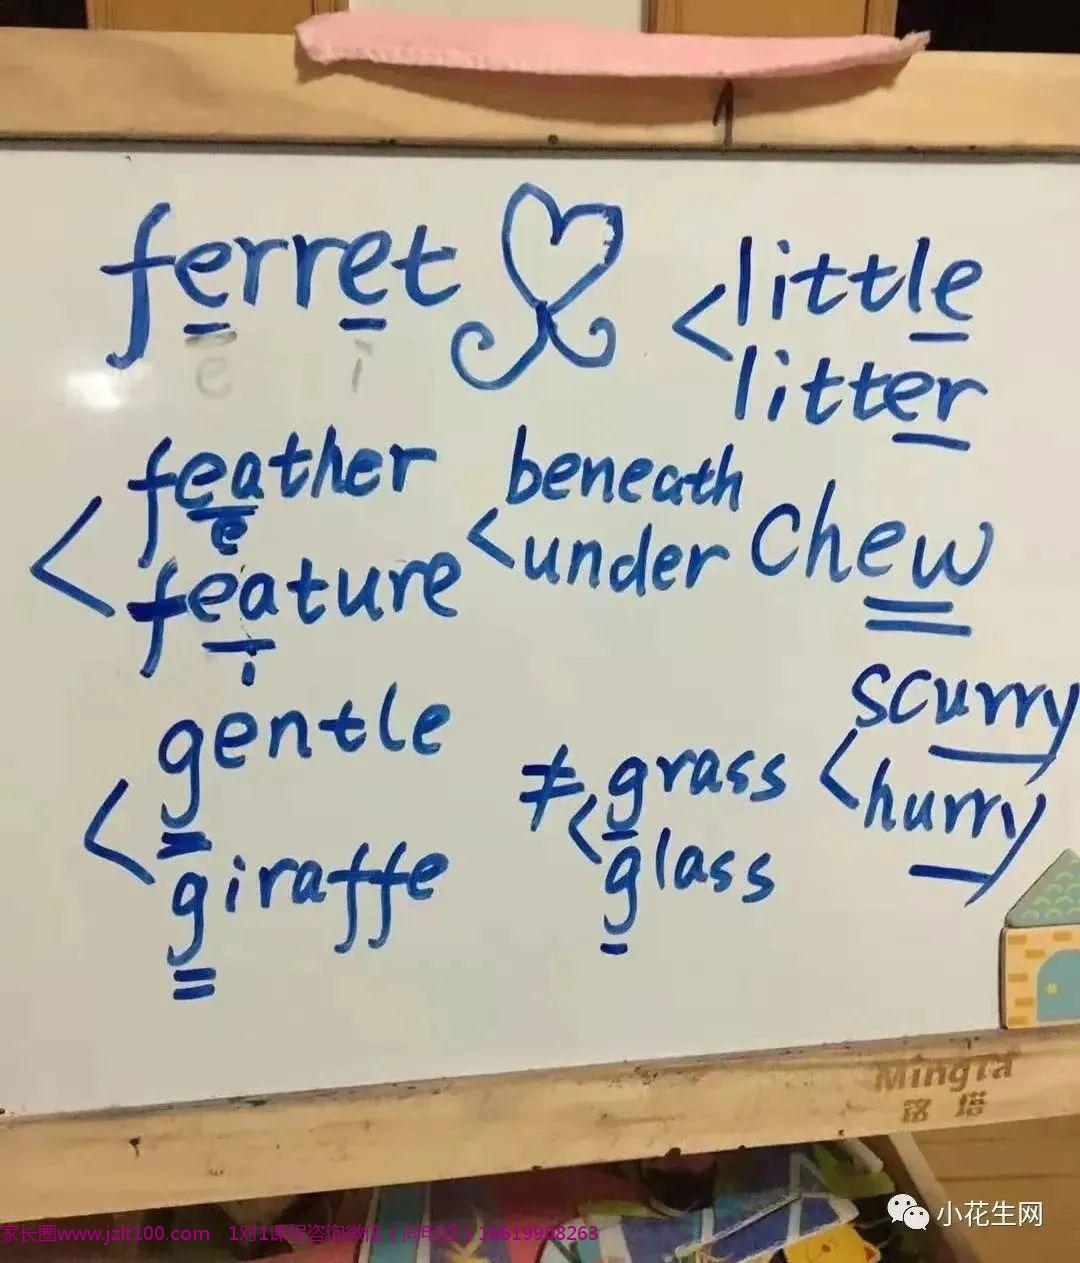 ferret
e i
little
litter
feather
e
feature
i
beneath
under
chew
gentle
giraffe
≠
grass
glass
scurry
hurry
MingTa
铭塔
小花生网
家长圈www.jzlt100.com 1对1课程咨询微信（同电话）18619908263